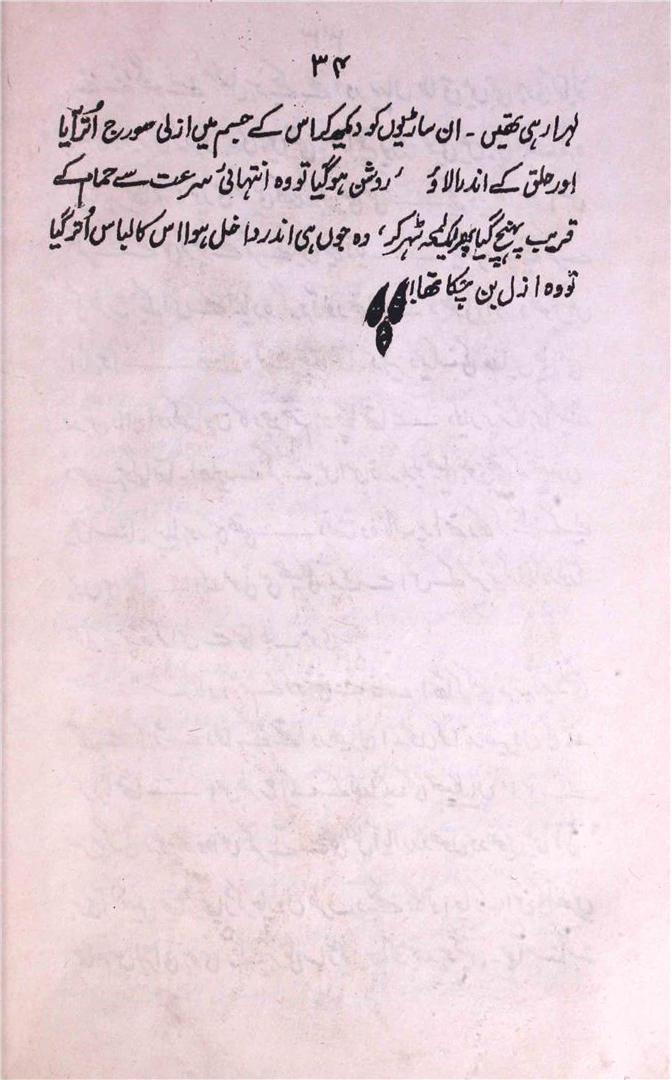 ۳۴
لہرا رہی تھیں ۔ ان ساڑیوں کو دیکھ کر اس کے جسم میں ازلی سورج اُتر آیا
اور حلق کے اندر الاؤ روشن ہو گیا تو وہ انتہائی سرعت سے حمام کے
قریب پہنچ گیا پھر ایک لمحہ ٹہر کر، وہ جوں ہی اندر داخل ہوا اس کا لباس اُتر گیا
تو وہ ازل بن چکا تھا!!